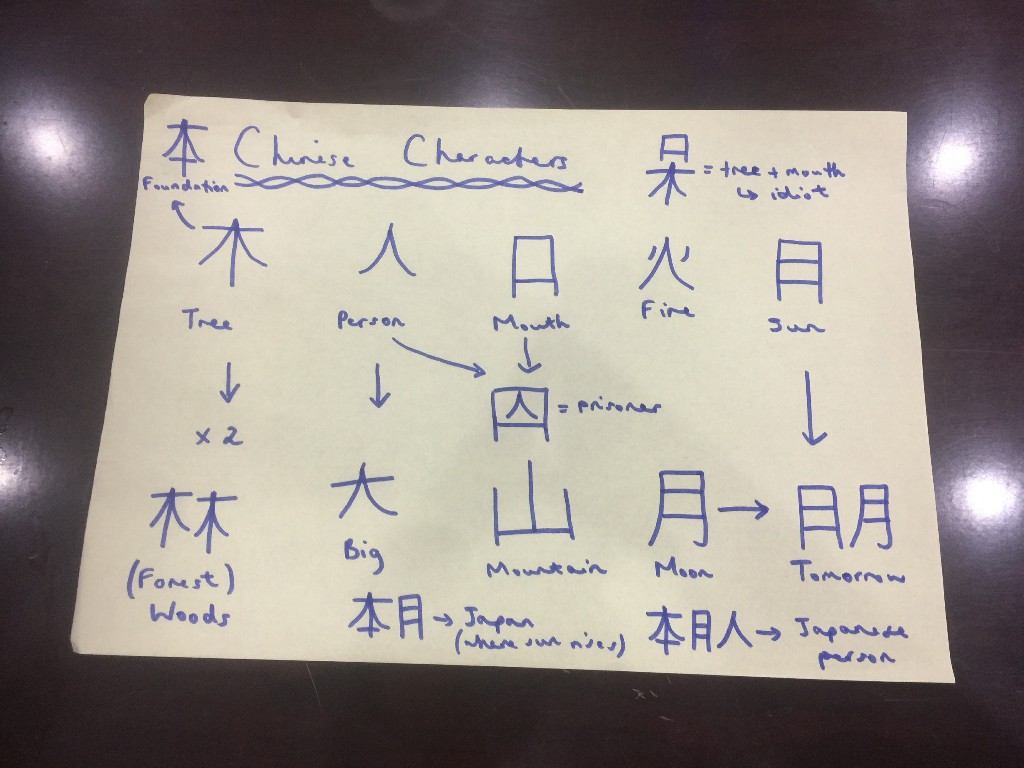 本 Chinise Characters
Foundation
呆 = tree + mouth
↳ idiot
木 人 口 火 日
Tree Person Mouth Fire Sun
↓ ↓ ↓ ↓
x 2
囚 = prisoner
林 大 山 月 → 日月
(Forest) Big Mountain Moon Tomorrow
Woods
本日 → Japan
(where sun rises)
本日人 → Japanese
person